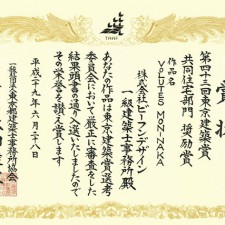 TAAF
賞状
第四十三回東京建築賞
共同住宅部門 奨励賞
作品名
VOLUTES MONINAKA
株式会社ビーフンデザイン
一級建築士事務所殿
あなたの作品は東京建築賞選考
委員会において厳正に審査をした
結果頭書の通り入選いたしましたので
その栄誉を讃え賞します
平成二十九年六月二十八日
一般社団法人東京都建築士事務所協会